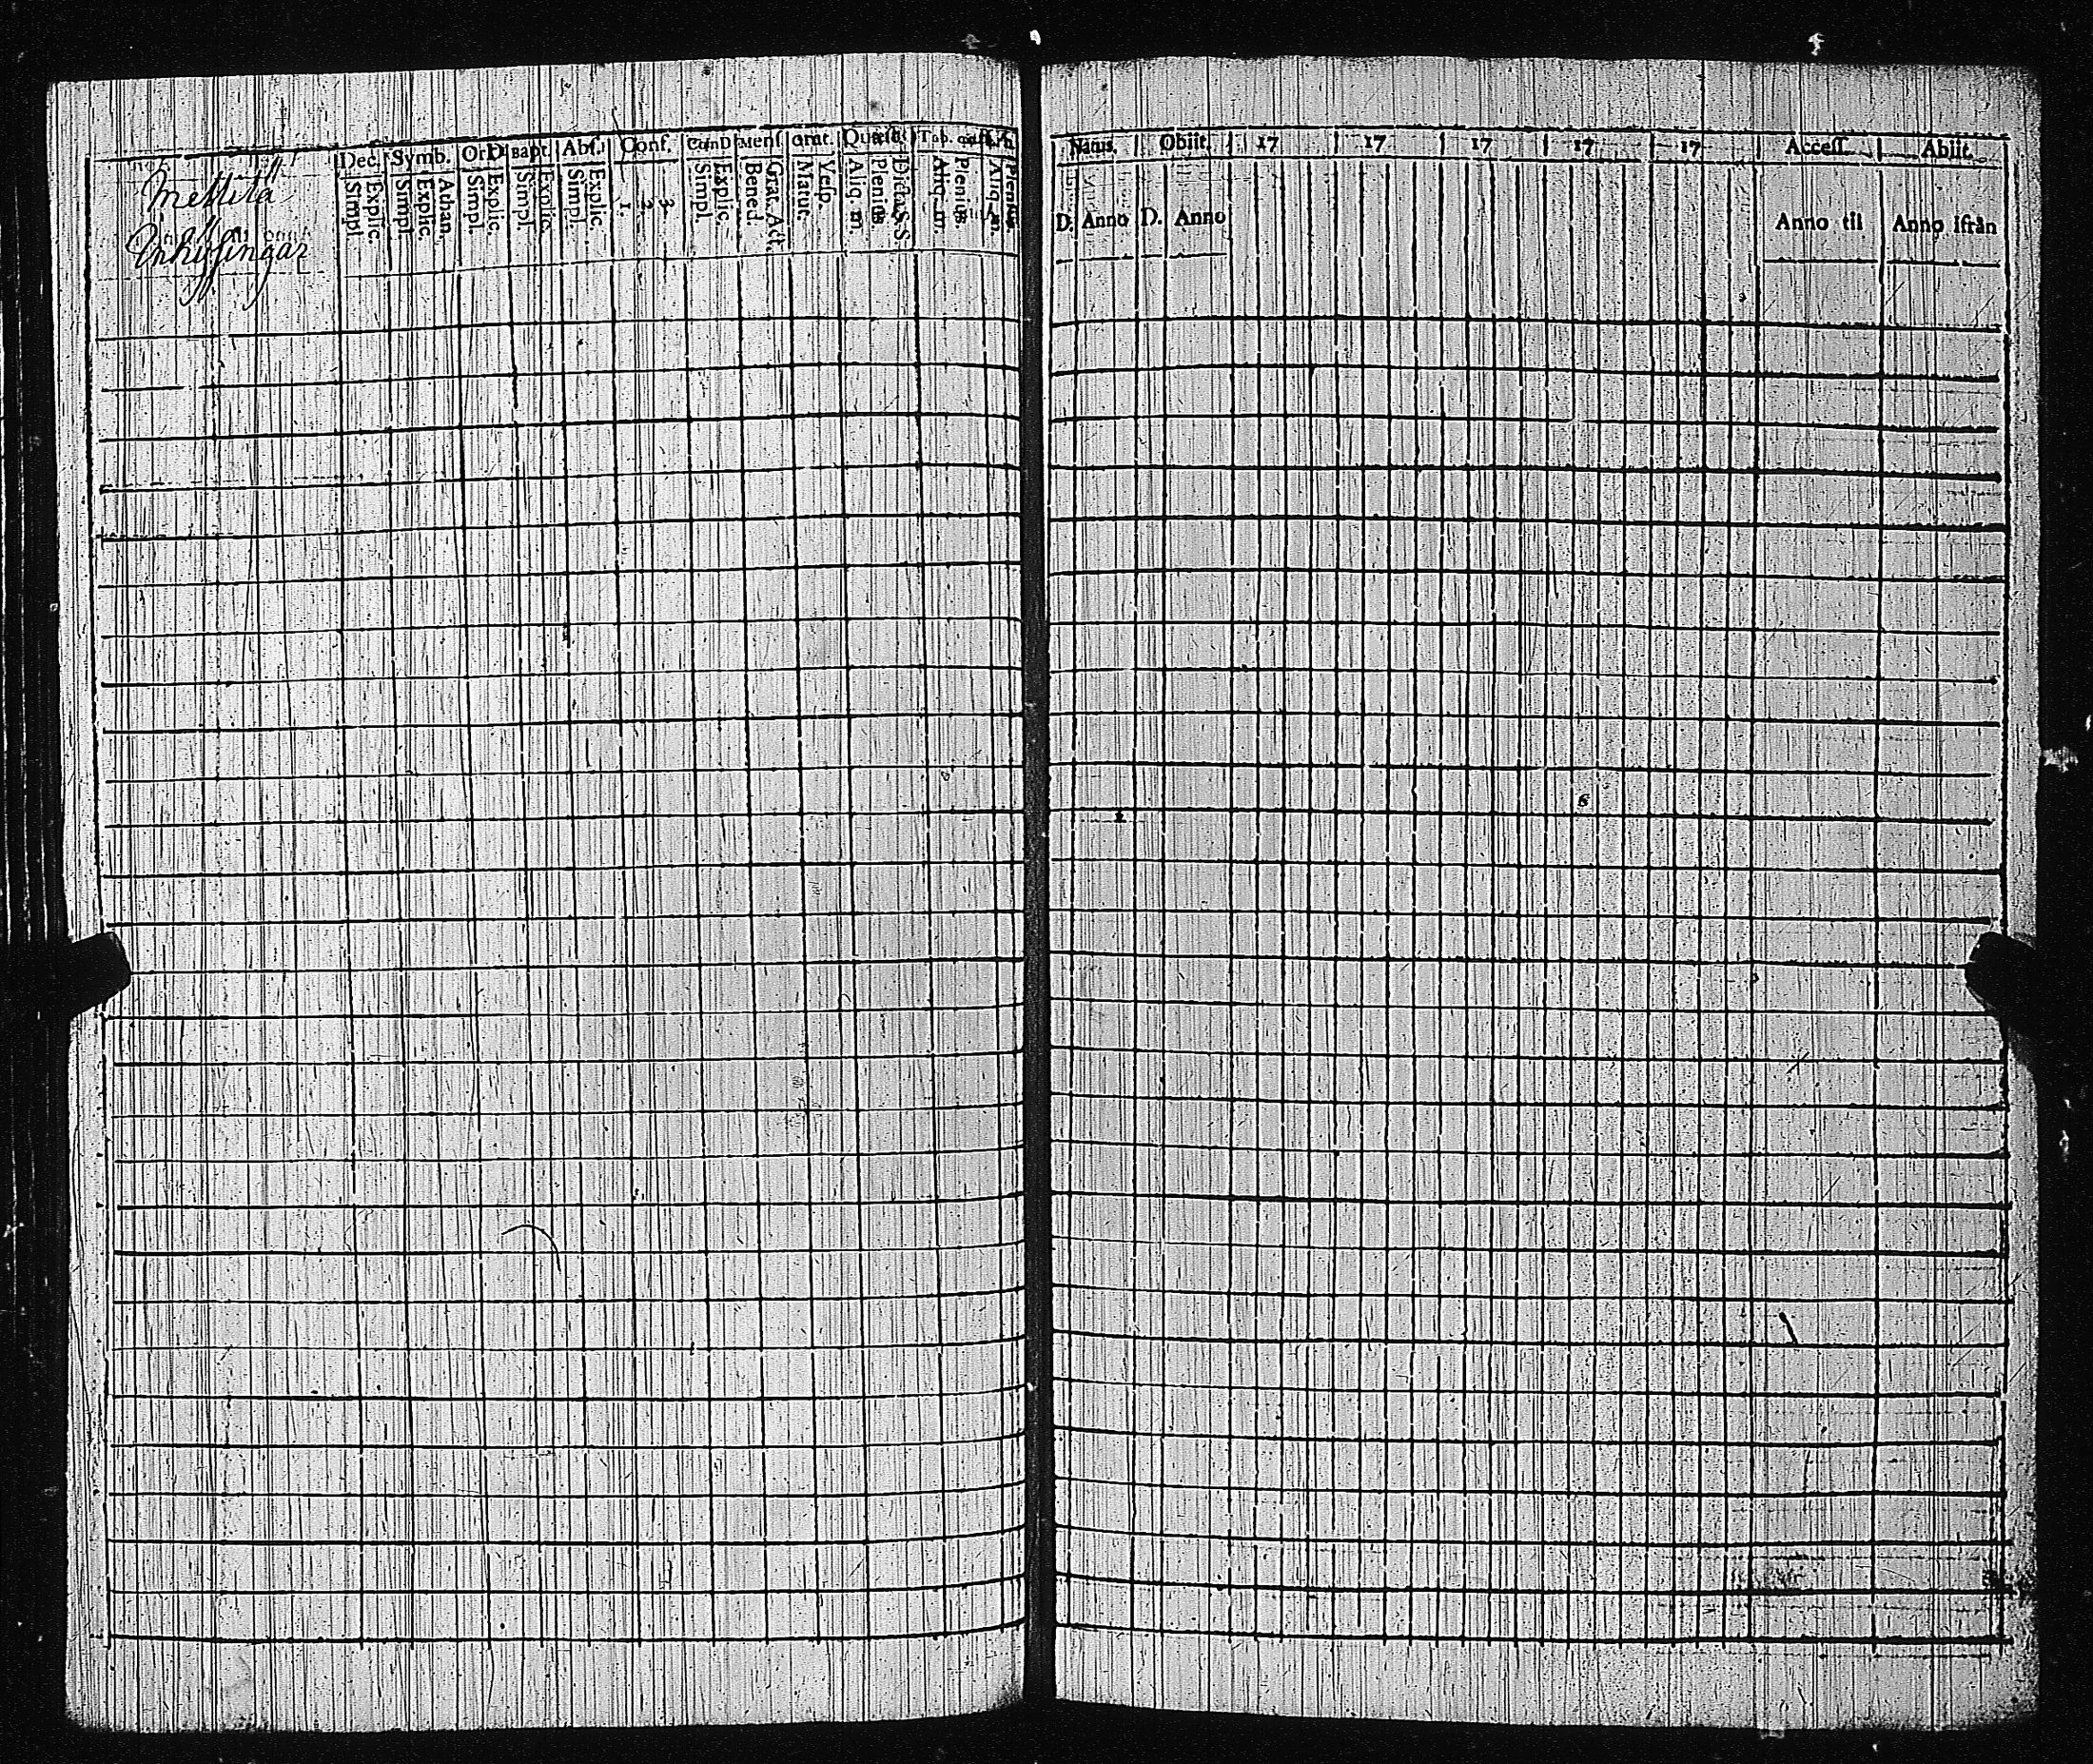 Mettilä
Dec. Symb. Or D Bapt. Abſ. Conf. Cœn D Menſ Grat. Quæſt. Tab. œcon.
Simpl. Explic. Simpl. Explic. Athan. Simpl. Explic. Simpl. Explic. Simpl. Explic. 1. 2. 3. Simpl. Explic. Bened. Grat. Act. Matut. Veſp. Aliq. m. Plenius. Dicta S. S. Aliq. m. Plenius. Aliq. m. Plenius
Natus. Obiit. 17 17 17 17 17 Acceſſ. Abiit.
D. Anno D. Anno Anno til Anno ifrån